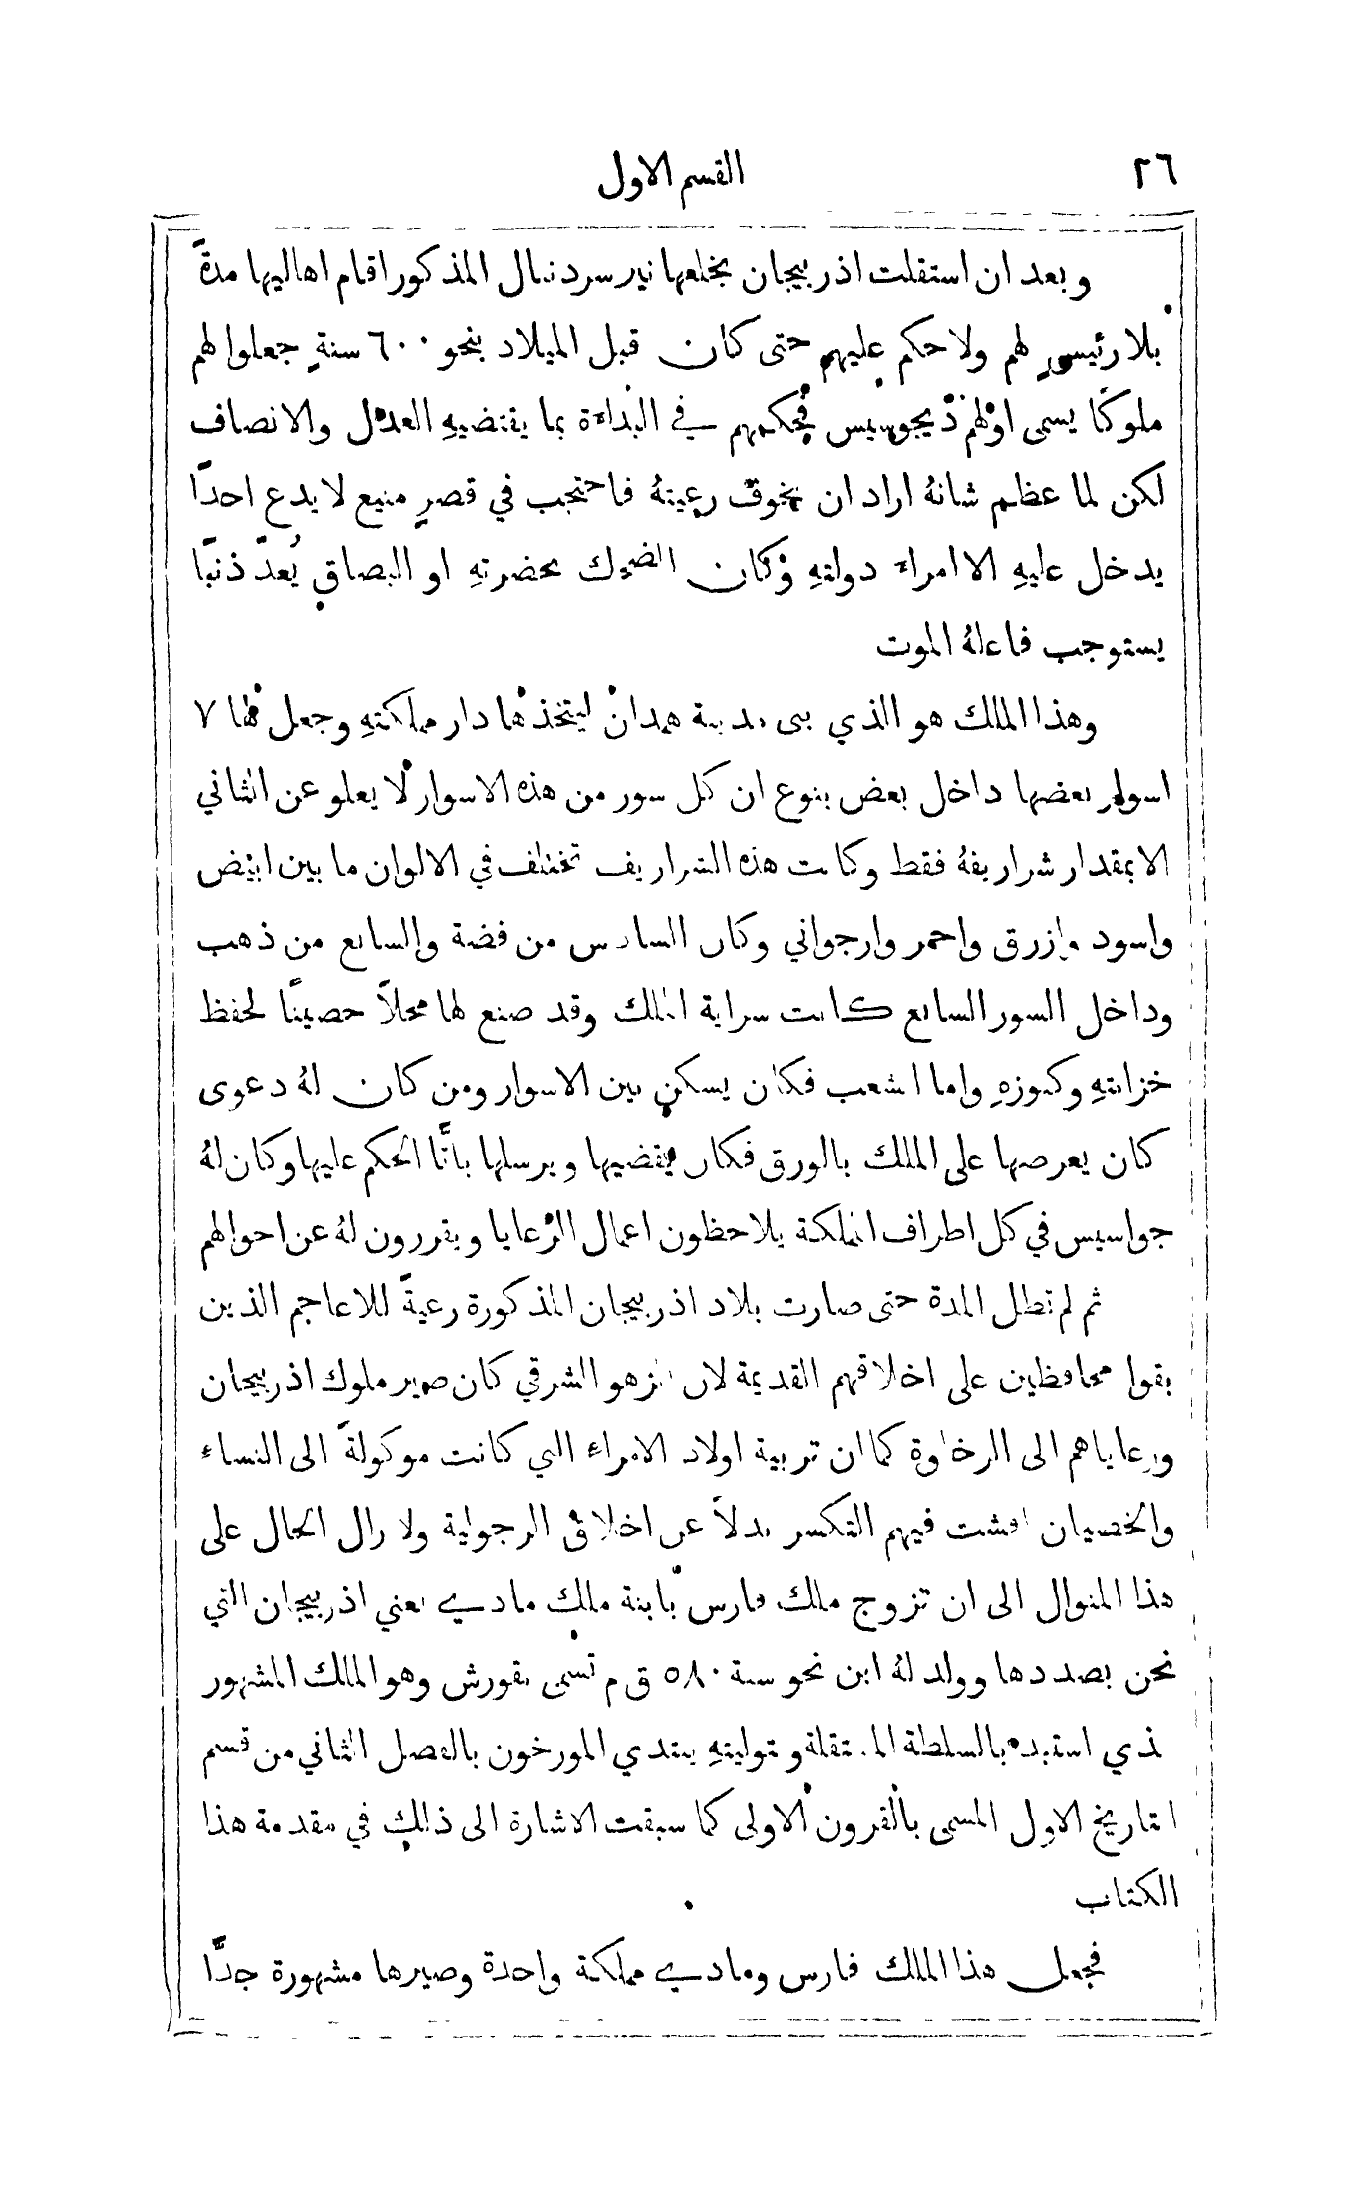 ٢٦
القسم الاول
وبعد ان استقلت اذربيجان بخلعها نير سردنبال المذكور اقام اهاليها مدةً
بلا رئيسٍ لهم ولا حكم عليهم حتى كان قبل الميلاد بنحو ٦٠٠ سنةٍ جعلوا لهم
ملوكًا يسمى اولهم ذيجوسيس فحكمهم في البداءة بما يقتضيهِ العدل والانصاف
لكن لما عظم شانهُ اراد ان يخوف رعيتهُ فاحتجب في قصرٍ منيع لا يدع احدًا
يدخل عليهِ الا امراء دولتهِ وكان الضحك بحضرتهِ او البصاق يُعدّ ذنبًا
يستوجب فاعلهُ الموت
وهذا الملك هو الذي بنى مدينة همدان ليتخذها دار مملكتهِ وجعل لها ٧
اسوار بعضها داخل بعض بنوع ان كل سور من هذه الاسوار لا يعلو عن الثاني
الا بمقدار شراريفهُ فقط وكانت هذه الشراريف تختلف في الالوان ما بين ابيض
واسود وازرق واحمر وارجواني وكان السادس من فضة والسابع من ذهب
وداخل السور السابع كانت سراية الملك وقد صنع لها محلاً حصينًا لحفظ
خزانتهِ وكنوزهِ واما الشعب فكان يسكن بين الاسوار ومن كان لهُ دعوى
كان يعرضها على الملك بالورق فكان يقضيها ويرسلها باتًّا الحكم عليها وكان لهُ
جواسيس في كل اطراف المملكة يلاحظون اعمال الرعايا ويقررون لهُ عن احوالهم
ثم لم تطل المدة حتى صارت بلاد اذربيجان المذكورة رعيةً للاعاجم الذين
بقوا محافظين على اخلاقهم القديمة لان الزهو الشرقي كان صير ملوك اذربيجان
ورعاياهم الى الرخاوة كما ان تربية اولاد الامراء التي كانت موكولةً الى النساء
والخصيان افشت فيهم التكسر بدلاً عن اخلاق الرجولية ولا زال الحال على
هذا المنوال الى ان تزوج ملك فارس بابنة ملك مادي يعني اذربيجان التي
نحن بصددها وولد لهُ ابن نحو سنة ٥٨٠ ق م تسمى بقورش وهو الملك المشهور
الذي استبد بالسلطة المستقلة وبتوليتهِ يبتدي المورخون بالفصل الثاني من قسم
التاريخ الاول المسمى بالقرون الاولى كما سبقت الاشارة الى ذلك في مقدمة هذا
الكتاب
فجعل هذا الملك فارس ومادي مملكة واحدة وصيرها مشهورة جدًّا